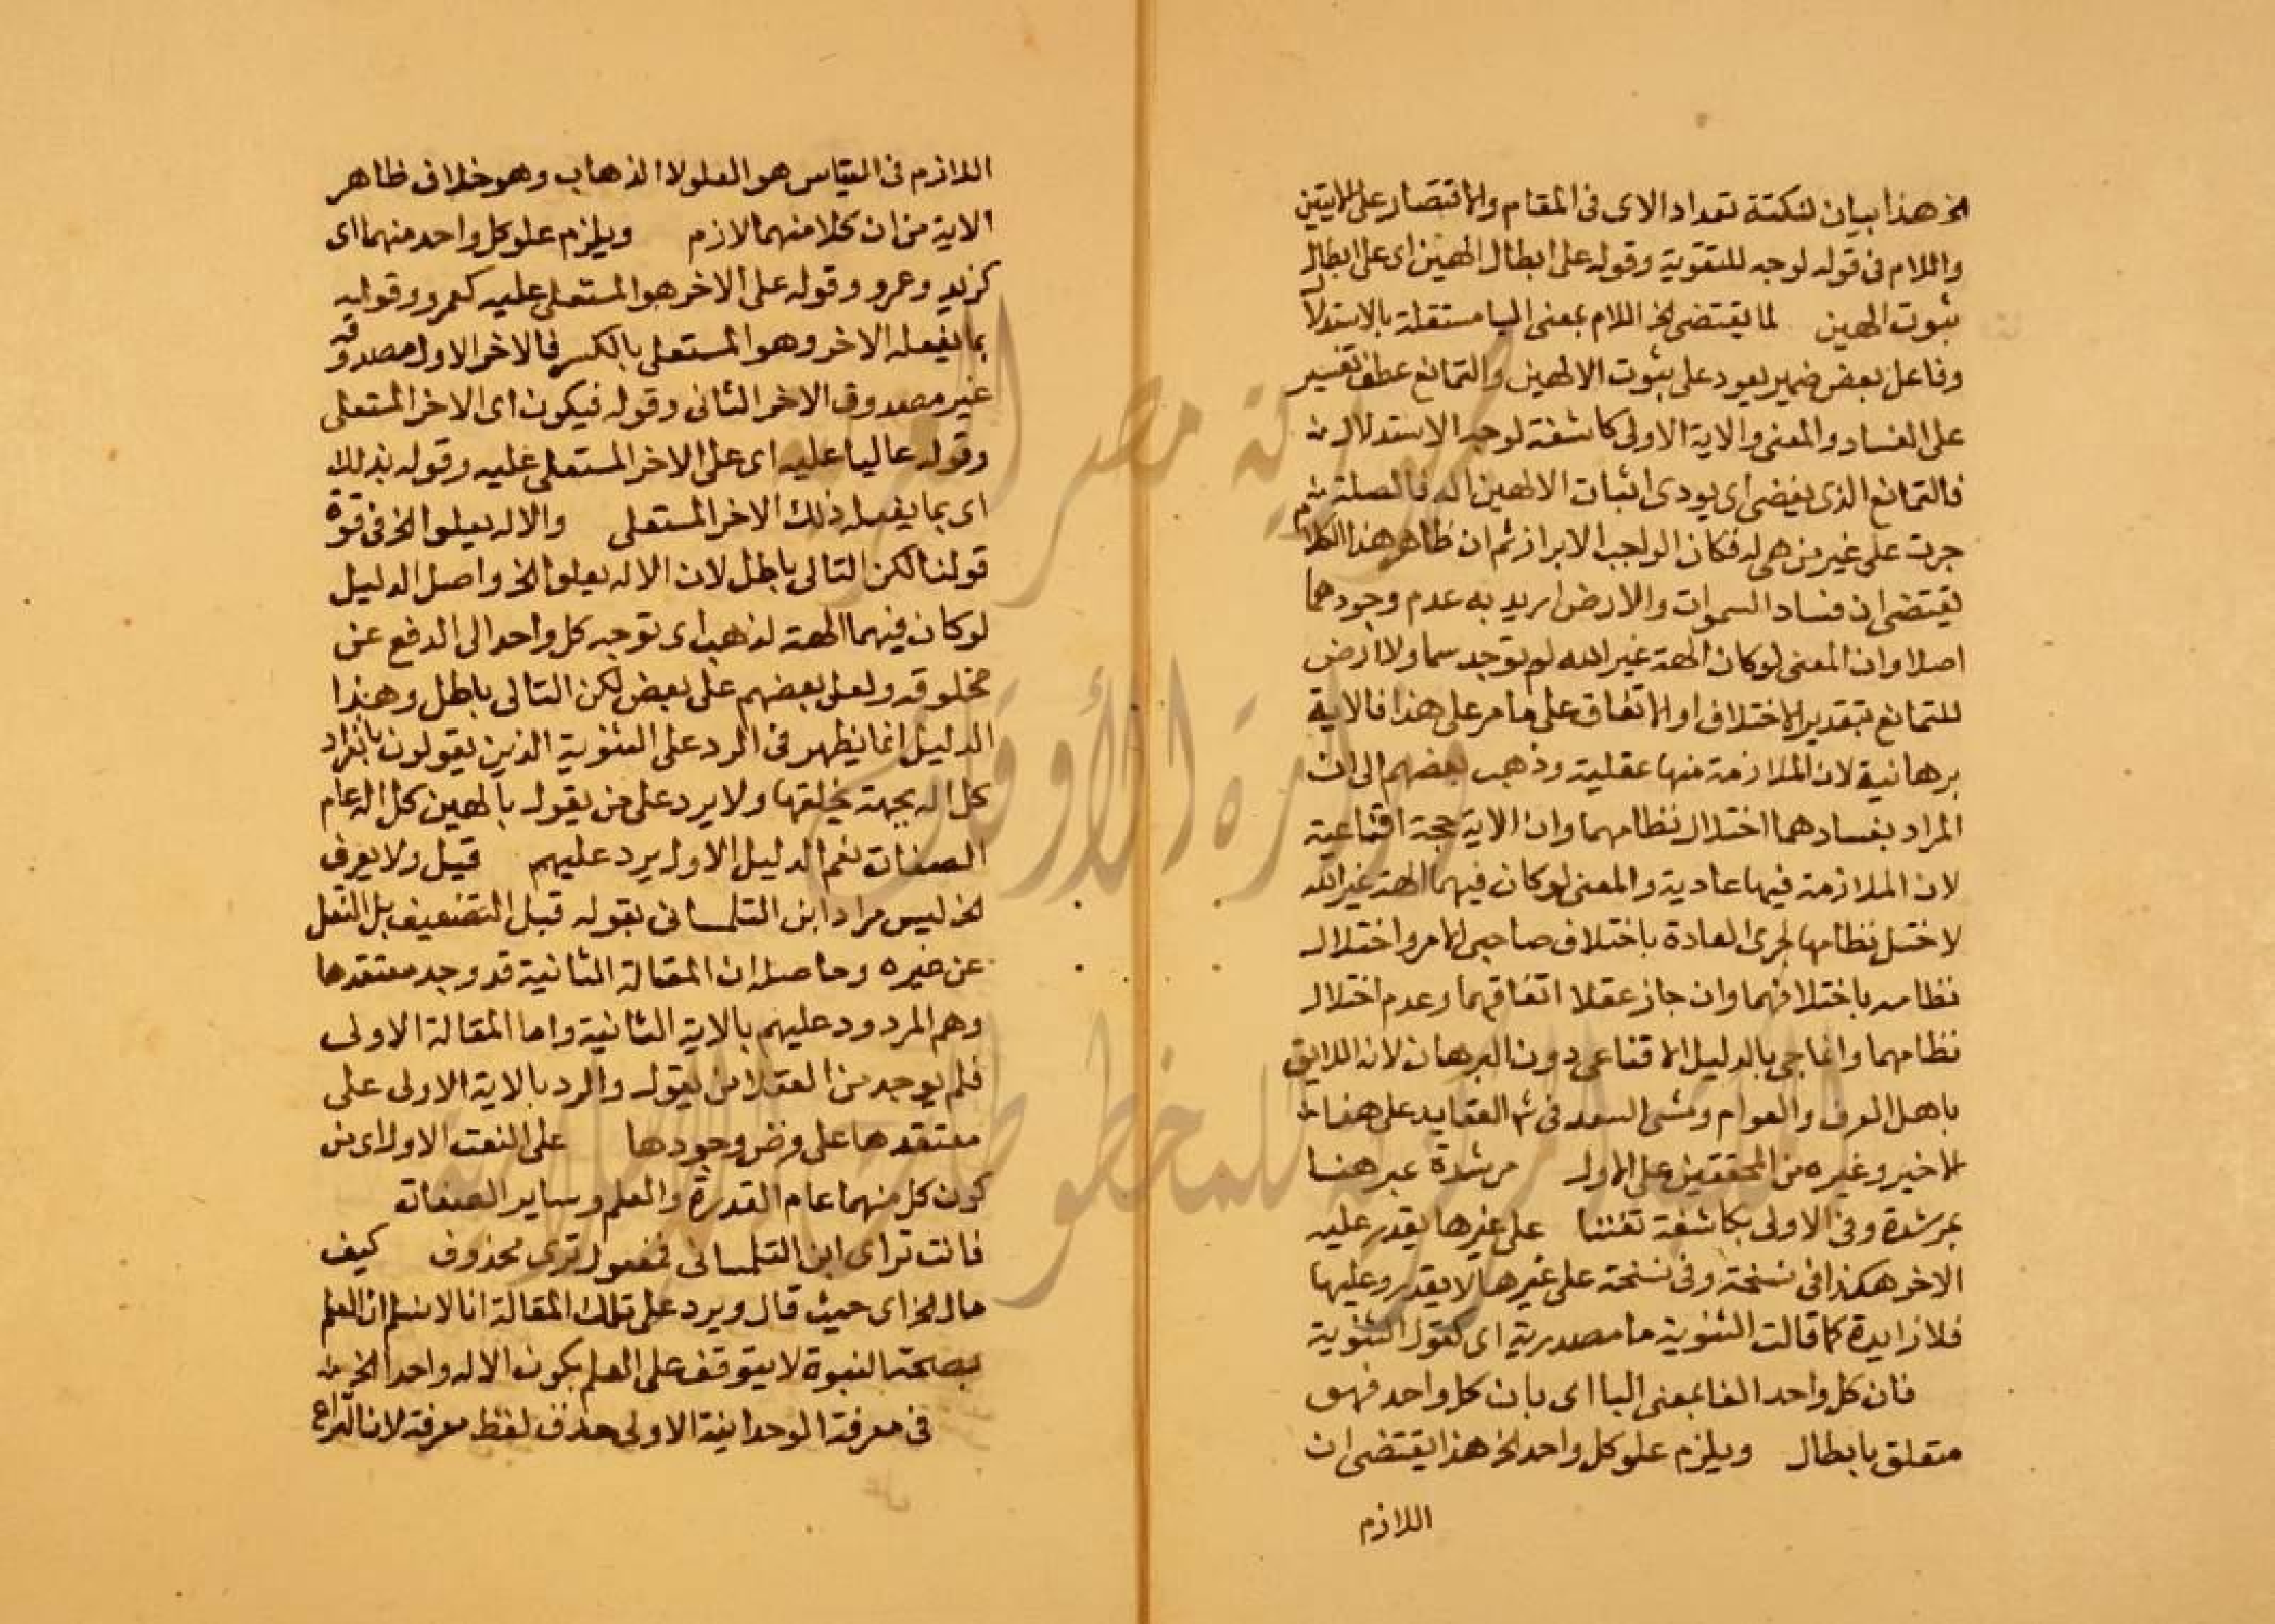 الخ هذا بيان لنكتة تعداد الاى فى المقام والاقتصار على الايتين
واللام فى قوله لوجه للتقوية وقوله على ابطال الهين اى على ابطال
ثبوت الهين لما يقتضى الخ اللام بمعنى البا مستقلة بالاستدلال
وفاعل بعض ضمير يعود على ثبوت الالهين والتمانع عطف تفسير
على الفساد والمعنى والاية الاولى كاشفة لوجه الاستدلال من
فالتمانع الذى يفضى اى يودى اثبات الالهين اليه فالصلة
جرت على غير من هى له فكان الواجب الابراز ثم ان ظاهر هذا الكلام
يقتضى ان فساد السموات والارض اريد به عدم وجودهما
اصلا وان المعنى لو كان الهة غير الله لم توجد سما ولا ارض
للتمانع بتقدير الاختلاف او الاتفاق على ما مر على هذا فالاية
برهانية لان الملازمة منها عقلية وذهب بعضهم الى ان
المراد بفسادهما اختلال نظامهما وان الاية حجة اقناعية
لان الملازمة فيها عادية والمعنى لو كان فيهما الهة غير الله
لاختل نظامها لجرى العادة باختلاف صاحبى الامر واختلال
نظامه باختلافهما وان جاز عقلا اتفاقهما وعدم اختلال
نظامهما وانما جى بالدليل الاقناعى دون البرهان لانه اللايق
باهل العرف والعوام ومشى السعد فى ش العقايد على هذا
الاخير وغيره من المحققين على الاول مرشدة عبر هنا
بمرشدة وفى الاولى بكاشفة تفننا على غيرها يقدر عليه
الاخر هكذا فى نسخة وفى نسخة على غيرها لا يقدر وعليها
فلا زايدة كما قالت الثنوية ما مصدرية اى كقول الثنوية
فان كل واحد الفا بمعنى البا اى بان كل واحد فهو
متعلق بابطال ويلزم علو كل واحد الخ هذا يقتضى ان
اللازم
اللازم فى القياس هو العلو لا الذهاب وهو خلاف ظاهر
الاية من ان كلا منهما لازم ويلزم علو كل واحد منهما اى
كزيد وعمرو وقوله على الاخر هو المستعلى عليه كعمرو وقوليه
بما يفعله الاخر وهو المستعلى بالكسر فالاخر الاول مصدوقه
غير مصدوق الاخر الثانى وقوله فيكون اى الاخر المستعلى
وقوله عاليا عليه اى على الاخر المستعلى عليه وقوله بذلك
اى بما يفعله ذلك الاخر المستعلى والاله يعلو الخ فى قوة
قولنا لكن التالى باطل لان الاله يعلو الخ واصل الدليل
لو كان فيهما الهة لذهب اى توجه كل واحد الى الدفع عن
مخلوقه ولعلى بعضهم على بعض لكن التالى باطل وهذا
الدليل انما يظهر فى الرد على الثنوية الذين يقولون بانفراد
كل اله بجهة يخلقها ولا يرد على من يقول بالهين كل اله عام
الصفات نعم الدليل الاول يرد عليهم قيل ولا يعرف
الخ ليس مراد ابن التلمسانى بقوله قيل التضعيف بل النقل
عن غيره وحاصله ان المقالة الثانية قد وجد معتقدها
وهم المردود عليهم بالاية الثانية واما المقالة الاولى
فلم يوجد من العقلا من يقول والرد بالاية الاولى على
معتقدها على فرض وجودها على النعت الاول اى من
كون كل منهما عام القدرة والعلم وساير الصفات
فانت ترى اى ابن التلمسانى فمفعول ترى محذوف كيف
حال الخ اى حيث قال ويرد على تلك المقالة انا لا نسلم ان العلم
بصحة النبوة لا يتوقف على العلم بكون الاله واحد الخ
فى معرفة الوحدانية الاولى حذف لفظ معرفة لان النزاع